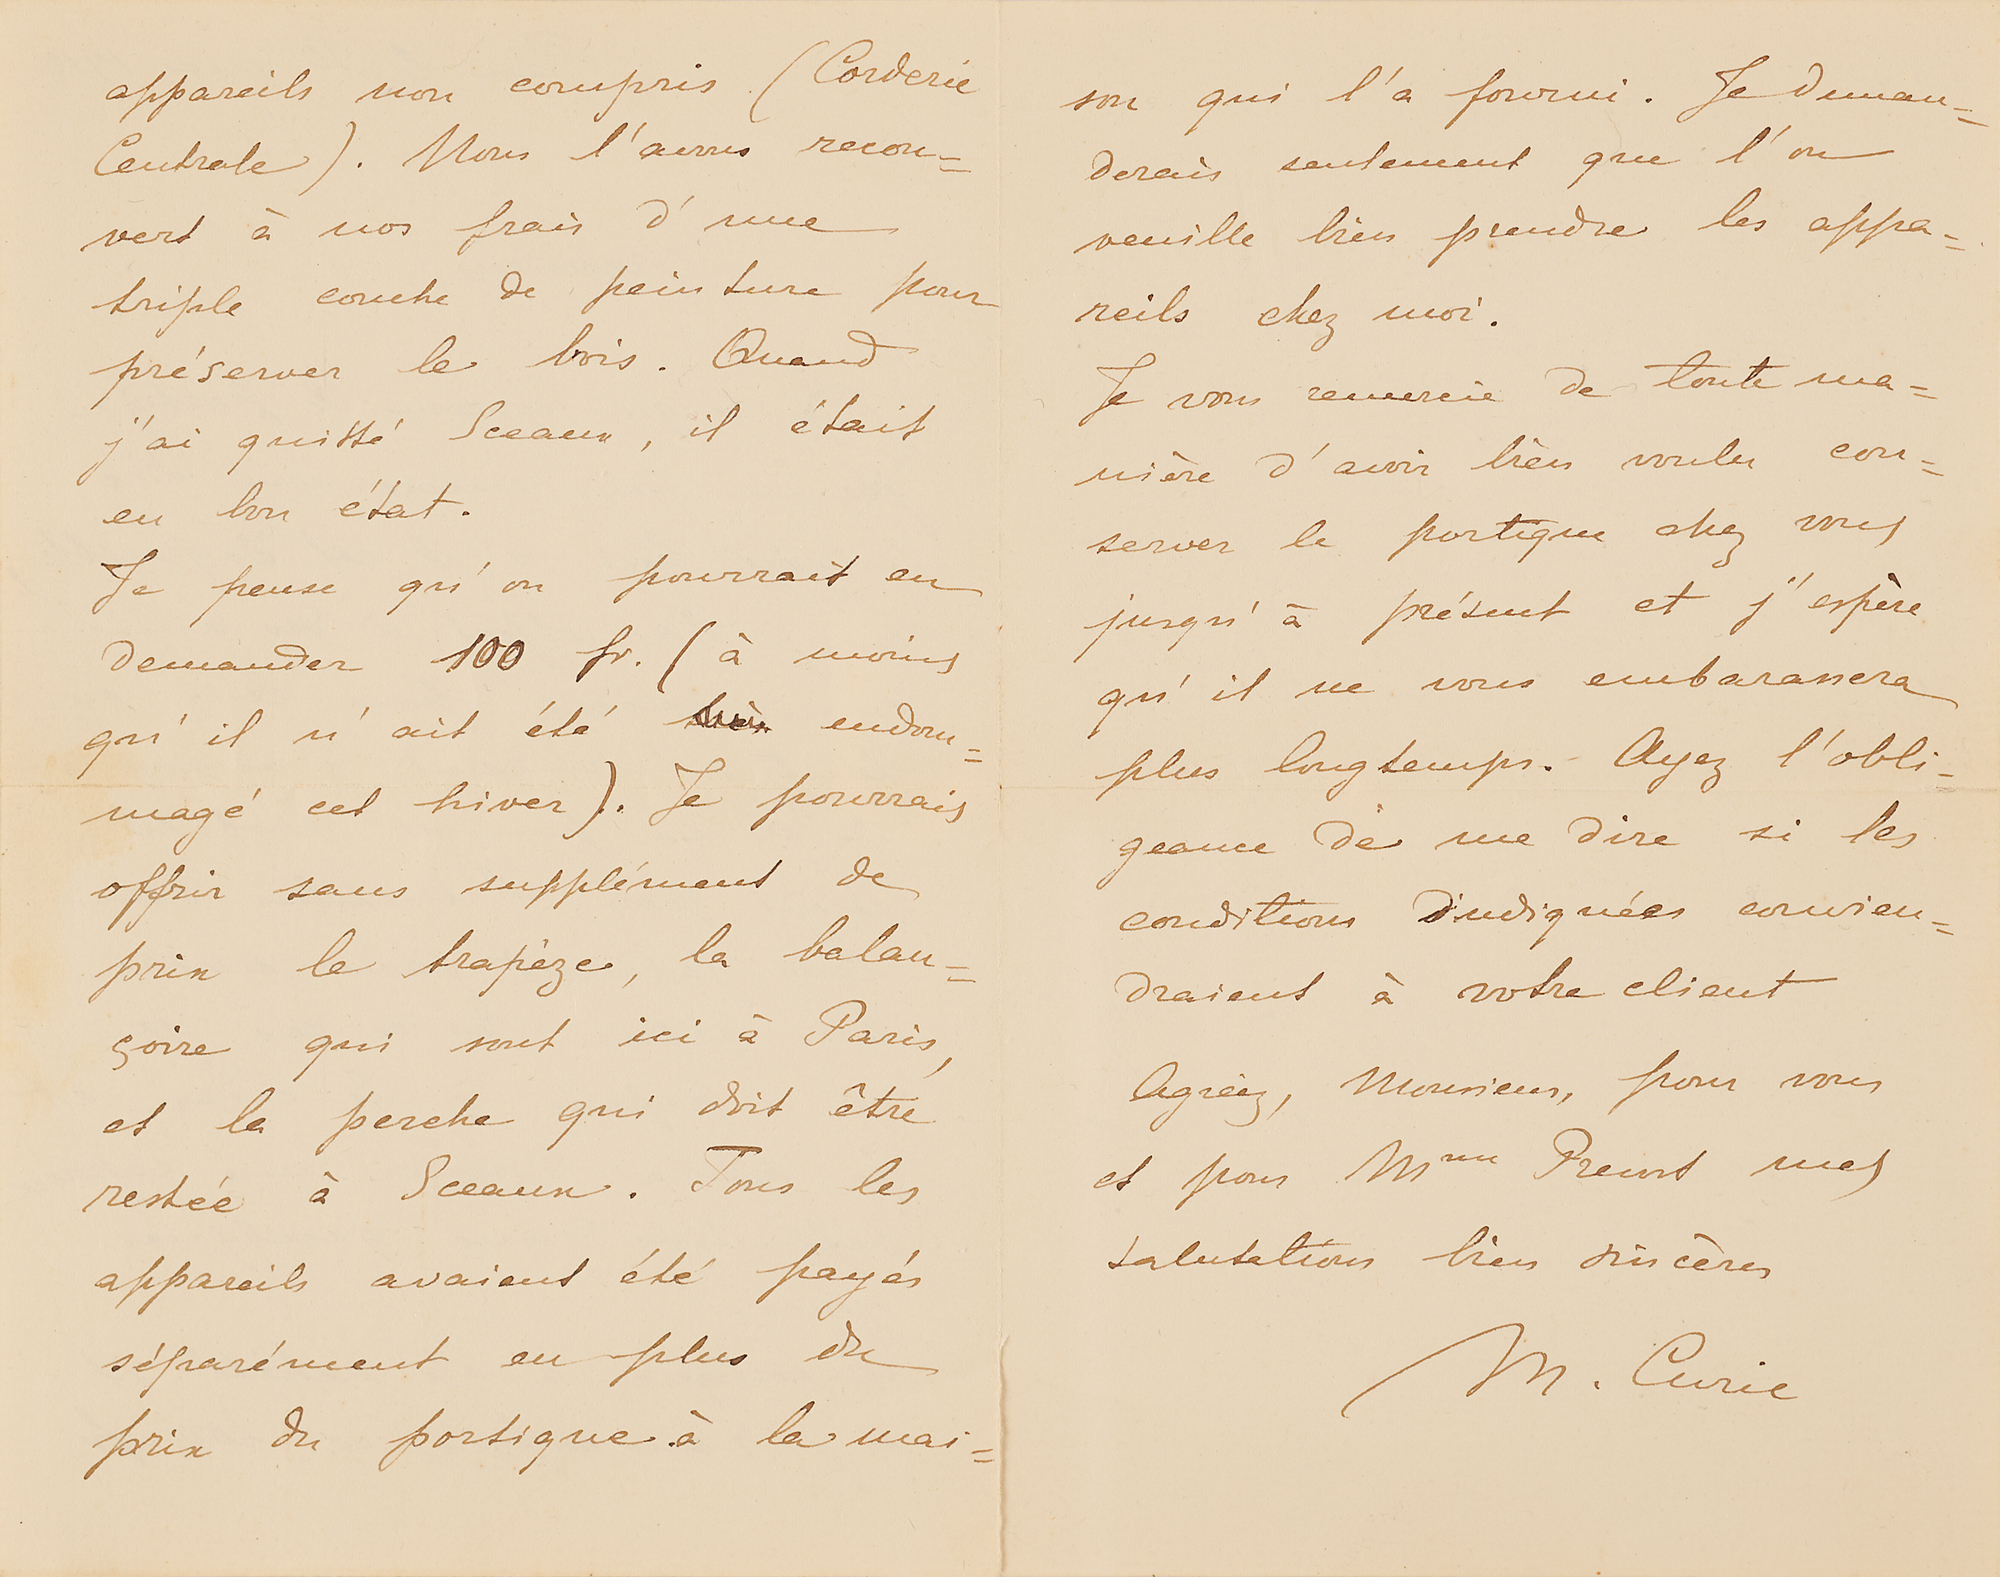 appareils non compris (Corderie
Centrale). Nous l'avons recou=
vert à nos frais d'une
triple couche de peinture pour
préserver le bois. Quand
j'ai quitté Sceaux, il était
en bon état.
Je pense qu'on pourrait en
demander 100 fr. (à moins
qu'il n'ait été endom=
magé cet hiver). Je pourrais
offrir sans supplément de
prix le trapèze, la balan=
çoire qui sont ici à Paris,
et la perche qui doit être
restée à Sceaux. Tous les
appareils avaient été payés
séparément en plus du
prix du portique à la mai=
son qui l'a fourni. Je deman=
derais seulement que l'on
veuille bien prendre les appa=
reils chez moi.
Je vous remercie de toute ma=
nière d'avoir bien voulu con=
server le portique chez vous
jusqu'à présent et j'espère
qu'il ne vous embarassera
plus longtemps. Ayez l'obli=
geance de me dire si les
conditions indiquées convien=
draient à votre client
Agréez, Monsieur, pour vous
et pour Mme Prevost mes
salutations bien sincères
M. Curie